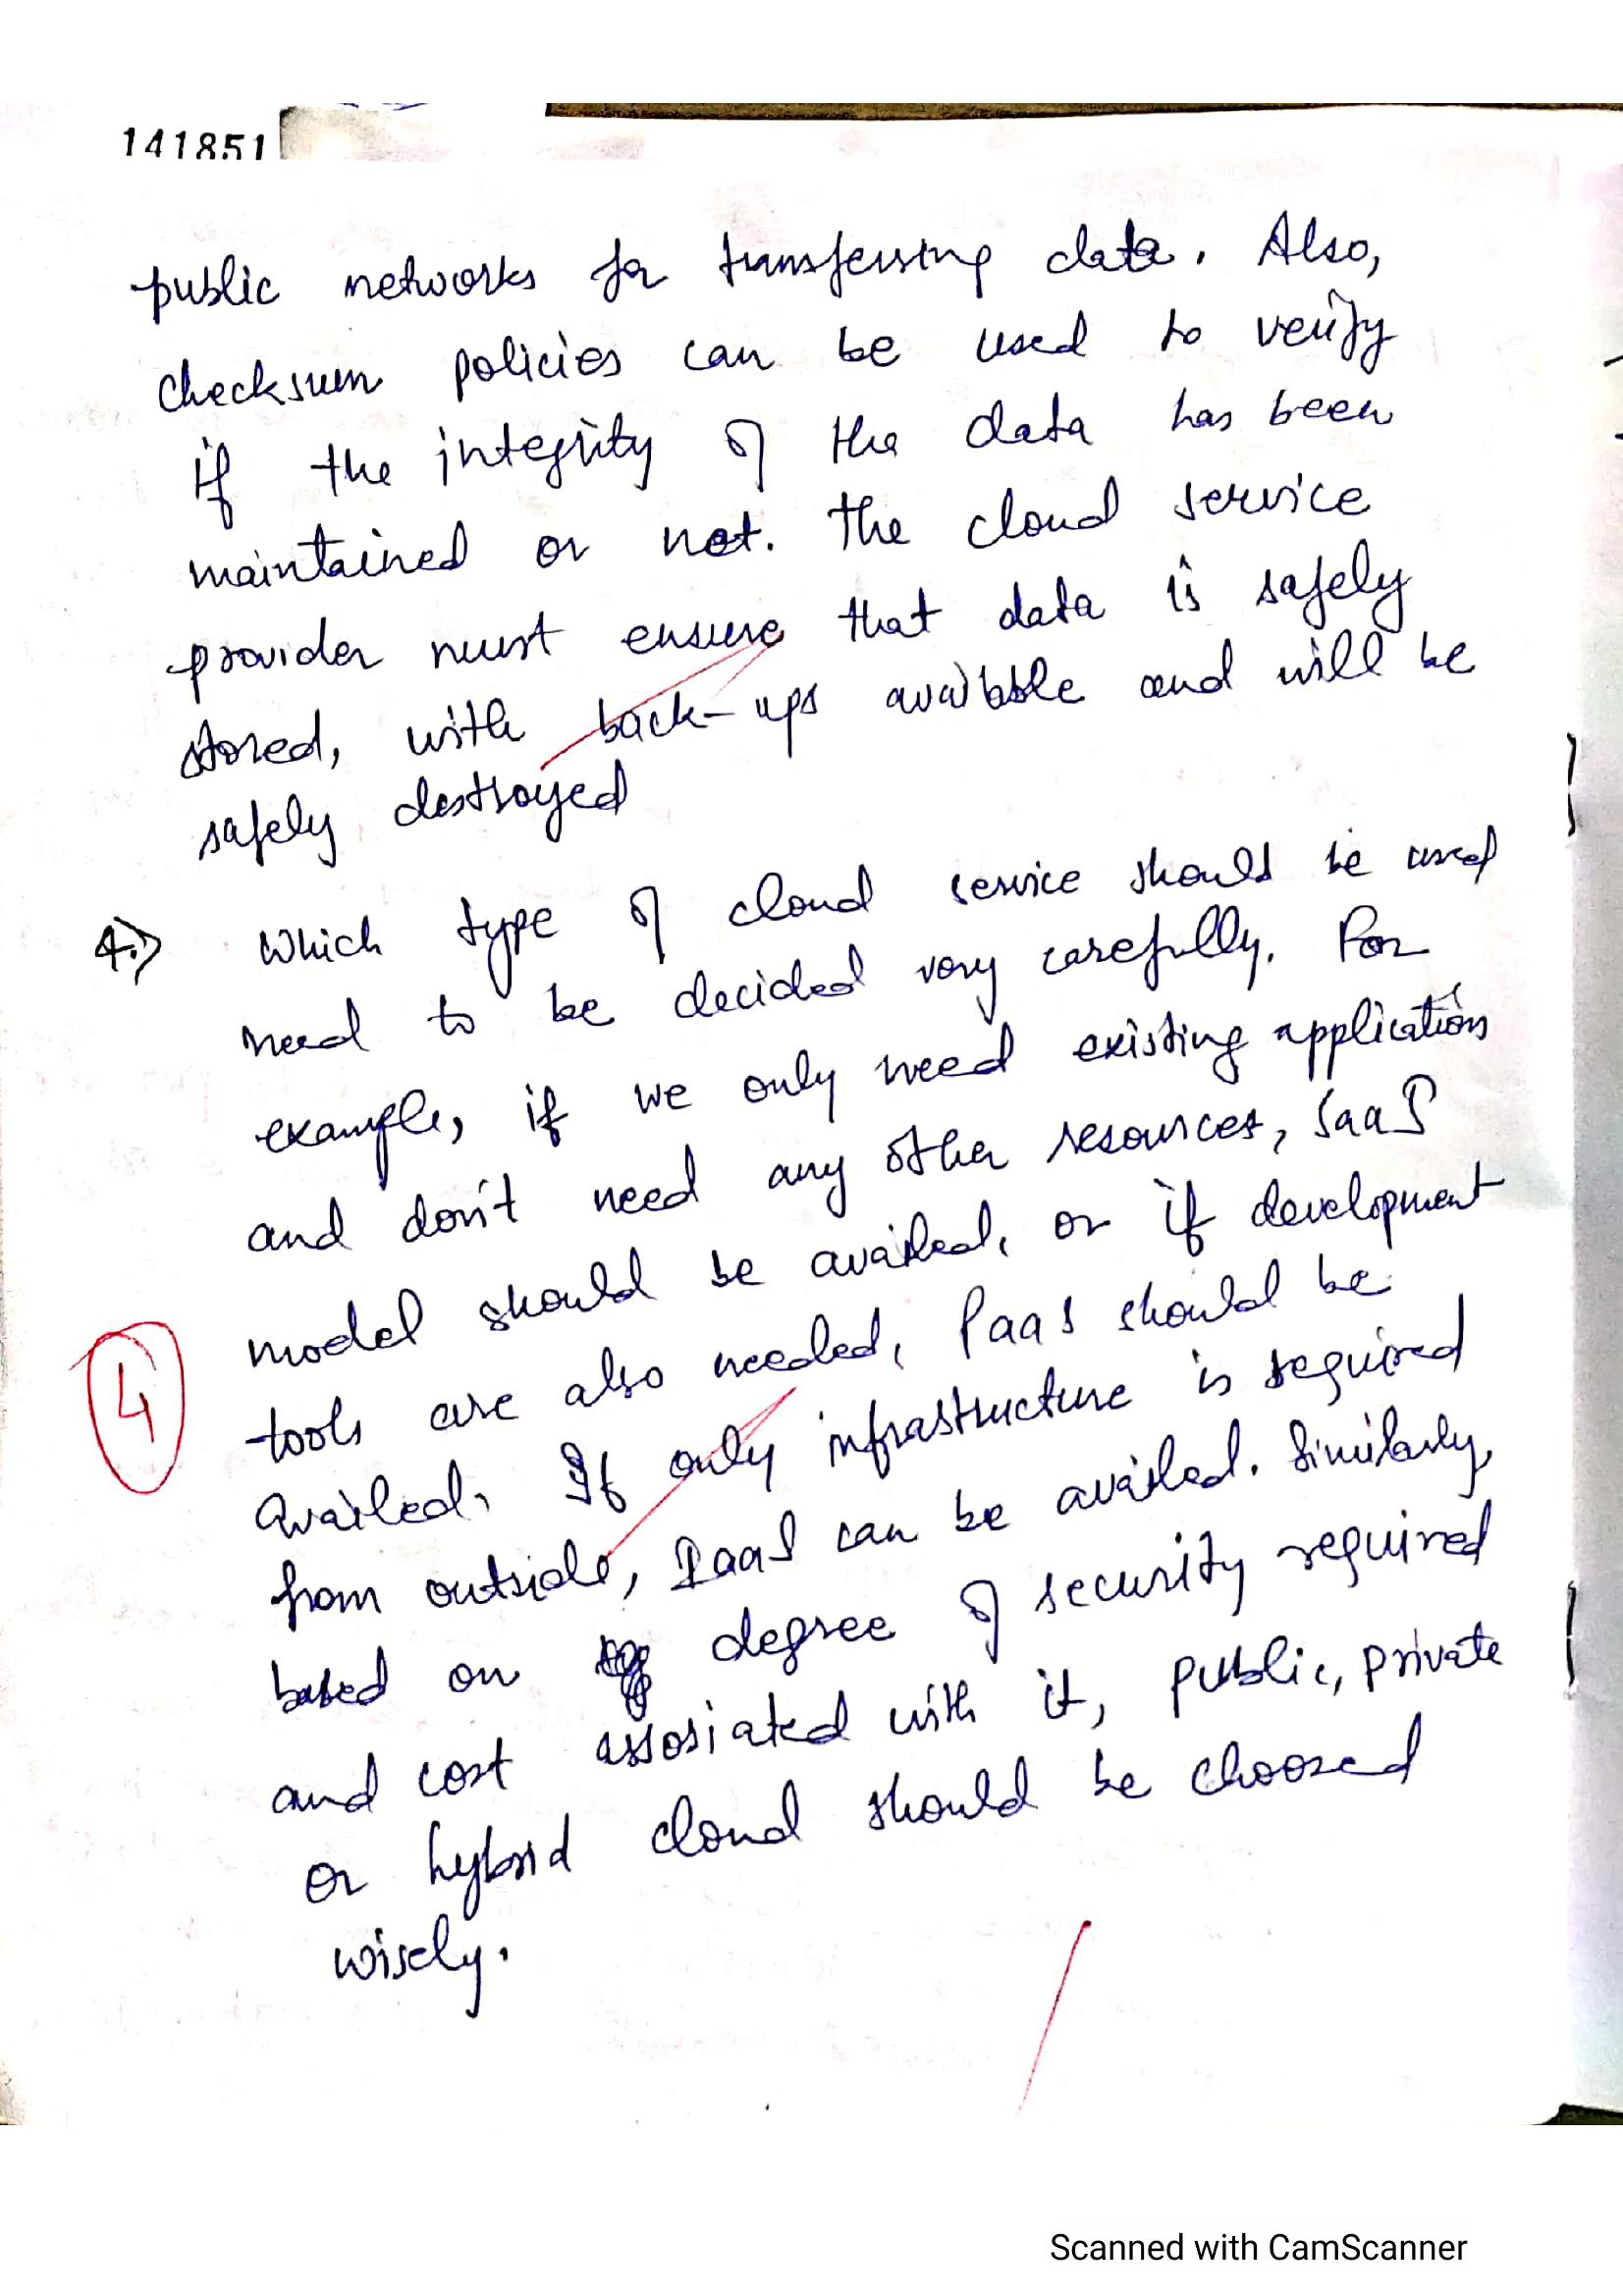 141851
public networks for transferring data. Also,
checksum policies can be used to verify
if the integrity of the data has been
maintained or not. the cloud service
provider must ensure that data is safely
stored, with back-ups available and will be
safely destroyed
4.) Which type of cloud service should be used
need to be decided very carefully. For
example, if we only need existing applications
and don't need any other resources, SaaS
model should be availed, or if development
tools are also needed, PaaS should be
availed. If only infrastructure is required
4
from outside, IaaS can be availed. Similarly,
based on degree of security required
and cost assosiated with it, public, private
or hybrid cloud should be choosed
wisely.
Scanned with CamScanner